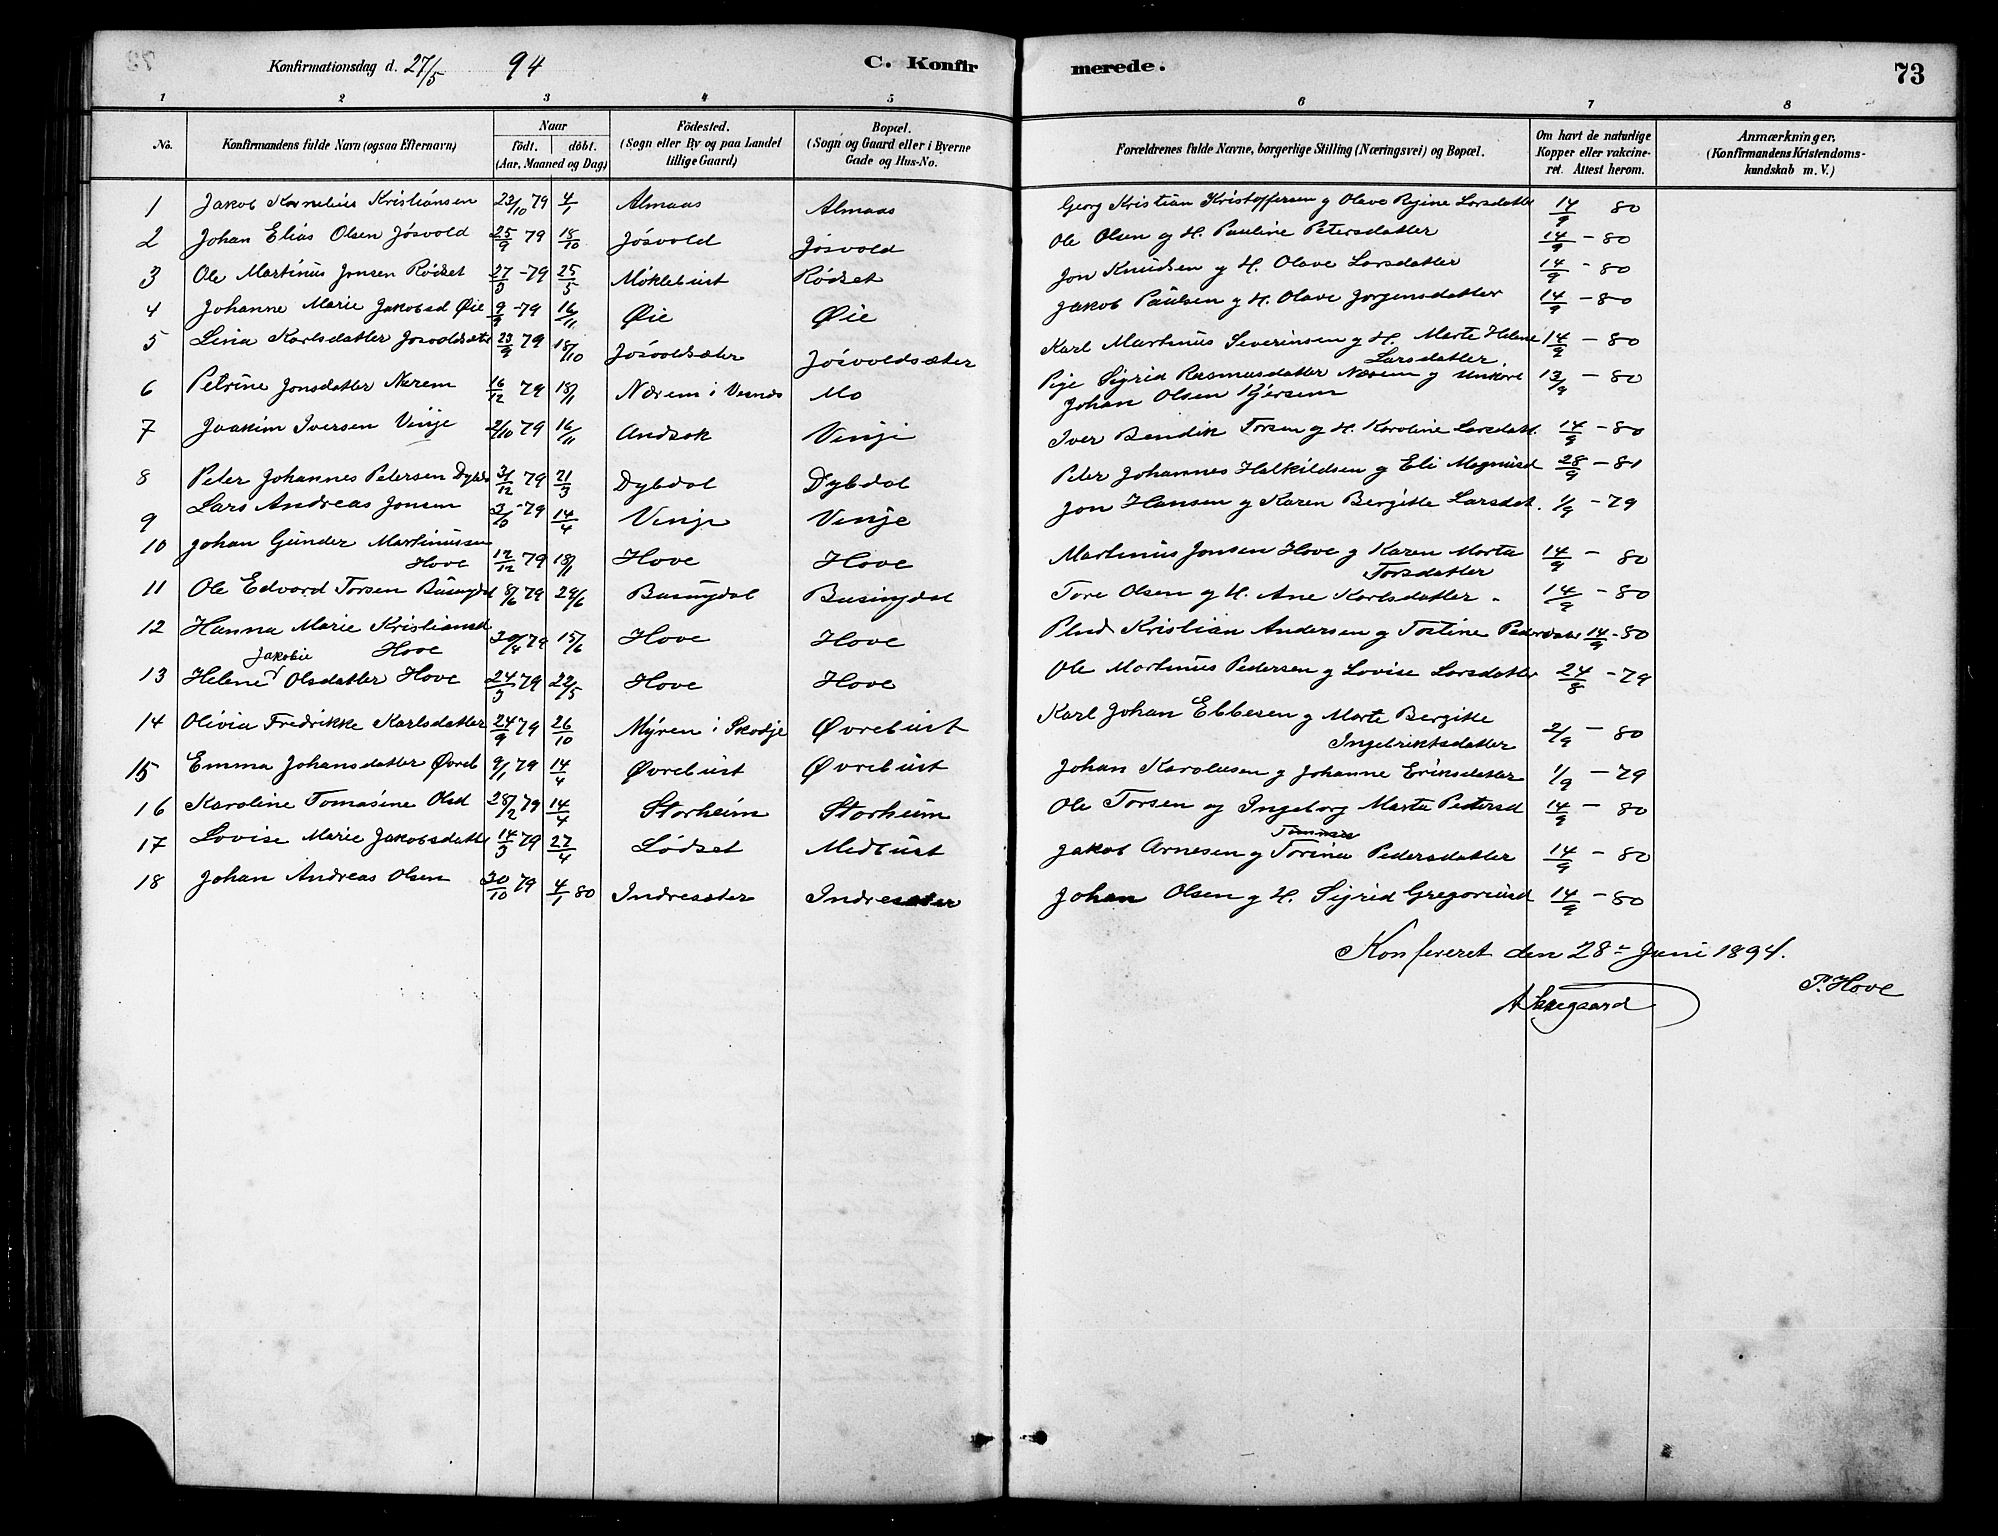 Konfirmationsdag d. 27/5 94 C. Konfir merede. 73
1 2 3 4 5 6 7 8
No. Konfirmandens fulde Navn (ogsaa Efternavn) Naar födt. döbt. (Aar, Maaned og Dag) Födested. (Sogn eller By og paa Landet tillige Gaard) Bopæl. (Sogn og Gaard eller i Byerne Gade og Hus-No. Forældrenes fulde Navne, borgerlige Stilling (Næringsvei) og Bopæl. Om havt de naturlige Kopper eller vakcineret. Attest herom. Anmærkninger, (Konfirmandens Kristendomskundskab m. V.)
1 Jakob Kornelius Kristiansen 23/10 79 4/1 Almaas Almaas Georg Kristian Kristoffersen g Olave Rgine Larsdatter 14/9 80
2 Johan Elias Olsen Jösvold 25/9 79 18/10 Jösvold Jösvold Ole Olsen og H. Pauline Petersdatter 14/9 - 80
3 Ole Martinus Jonsen Rödset 27/3 -79 25/5 Möklebust Rödset Jon Knudsen g H. Olave Larsdatter 14/9 - 80
4 Johanne Marie Jakobsd Øie 9/9 -79 16/11 Øie Øie Jakob Paulsen g H. Olave Jorgensdatter 14/9 - 80
5 Lina Karlsdatter Josvoldsæter 23/9 79 18/10 Jösvoldsæter Jösvoldsæter Karl Martinus Severinsen g H. Marte Helene
Larsdatter 14/9 - 80
6 Petrine Jonsdatter Nerem 16/12 79 18/1 Nærem i Vesnes Mo Pige Sigrid Rasmusdatter Nærem g Unkarl
Johan Olsen Gjersem 13/9 - 80
7 Joakim Iversen Vinje 2/10 79 16/11 Andsok Vinje Iver Bendik Torsen g H. Karoline Larsdatt. 14/9 - 80
8 Peter Johannes Petersen Dybda 31/12 79 21/3 Dybdal Dybdal Peter Johannes Halkildsen g Eli Magnusd 28/9 - 81
9 Lars Andreas Jonsen 79 14/4 Vinje Vinje Jon Hansen g Karen Bergitte Larsdat. 1/9 - 79
10 Johan Gunder Martinussen
Hove 12/12 79 18/1 Hove Hove Martinus Jonsen Hove g Karen Marta
Torsdatter 14/9 - 80
11 Ole Edvard Torsen Busngdal 8/6 79 29/6 Busngdal Busingdal Tore Olsen og H. Ane Karlsdatter - 14/9 - 80
12 Hanna Marie Kristiansd
Hove 79 15/6 Hove Hove Kristian Andersen g Tostine Pedersdatter 14/9 - 80
Jakobie
13 Helene Olsdatter Hove 24/3 79 22/5 Hove Hove Ole Martinus Pedersen g Lovise Larsdatter 24/8 - 79
14 Olivia Fredrikke Karlsdatter 24/9 79 26/10 Myren i Skodje Øvrebust Karl Johan Ebbesen g Marte Bergitte
Ingebriktsdatter 2/9 - 80
15 Emma Johansdatter Øvreb 9/1 79 14/4 Øvrebust Øvrebust Johan Karolusen g Johanne Eriksdatter 1/9 - 79
16 Karoline Tomasine Olsd 28/2 79 14/4 Storheim Storheim Ole Torsen og Ingeborg Marta Petersd 14/9 - 80
17 Lovise Marie Jakobsdatte 14/3 79 27/4 Lödset Medbust Jakob Arnesen g Torina Pedersdatter 14/9 - 80
18 Johan Andreas Olsen 30/10 79 4/1 80 Indresæter Indresæter Johan Olsen g H. Sigrid Gregoriusd 14/9 - 80
Konfereret den 28- Juni 1894.
P. Hove